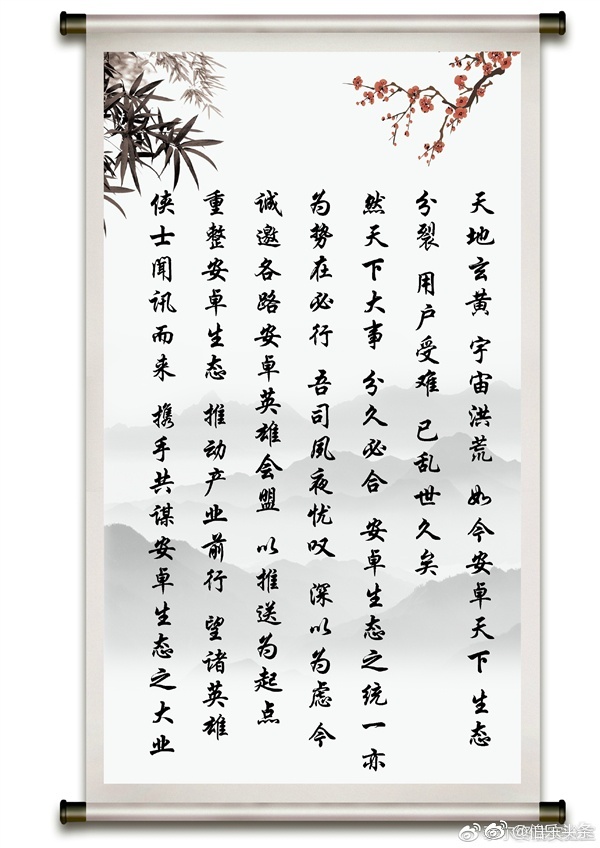 天地玄黄 宇宙洪荒 如今安卓天下 生态
分裂 用户受难 已乱世久矣
然天下大事 分久必合 安卓生态之统一亦
为势在必行 吾司夙夜忧叹 深以为虑 今
诚邀各路安卓英雄会盟 以推送为起点
重整安卓生态 推动产业前行 望诸英雄
侠士闻讯而来 携手共谋安卓生态之大业
@伯乐头条